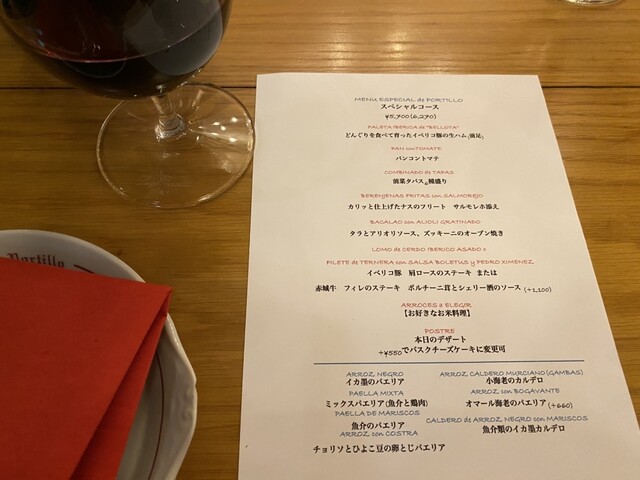 Portillo
MENU ESPECIAL de PORTILLO
スペシャルコース
¥5,700(6,270)
PALETA IBERICA de "BELLOTA"
どんぐりを食べて育ったイベリコ豚の生ハム
PAN conTOMATE
パンコントマテ
COMBINADO de TAPAS
前菜タパス 種盛り
BERENJENAS FRITAS con SALMOREJO
カリッと仕上げたナスのフリート サルモレホ添え
BACALAO con ALIOLI GRATINADO
タラとアリオリソース、ズッキーニのオーブン焼き
LOMO de CERDO IBERICO ASADO o
FILETE de TERNERA con SALSA BOLETUS y PEDRO XIMENEZ
イベリコ豚 肩ロースのステーキ または
赤城牛 フィレのステーキ ポルチーニ茸とシェリー酒のソース (+1,100)
ARROCES a ELEGIR
【お好きなお米料理】
POSTRE
本日のデザート
+¥550でバスクチーズケーキに変更可
ARROZ NEGRO
イカ墨のパエリア
PAELLA MIXTA
ミックスパエリア(魚介と鶏肉)
PAELLA DE MARISCOS
魚介のパエリア
ARROZ con COSTRA
チョリソとひよこ豆の卵とじパエリア
ARROZ CALDERO MURCIANO(GAMBAS)
小海老のカルデロ
ARROZ con BOGAVANTE
オマール海老のパエリア(+660)
CALDERO de ARROZ NEGRO con MARISCOS
魚介類のイカ墨カルデロ